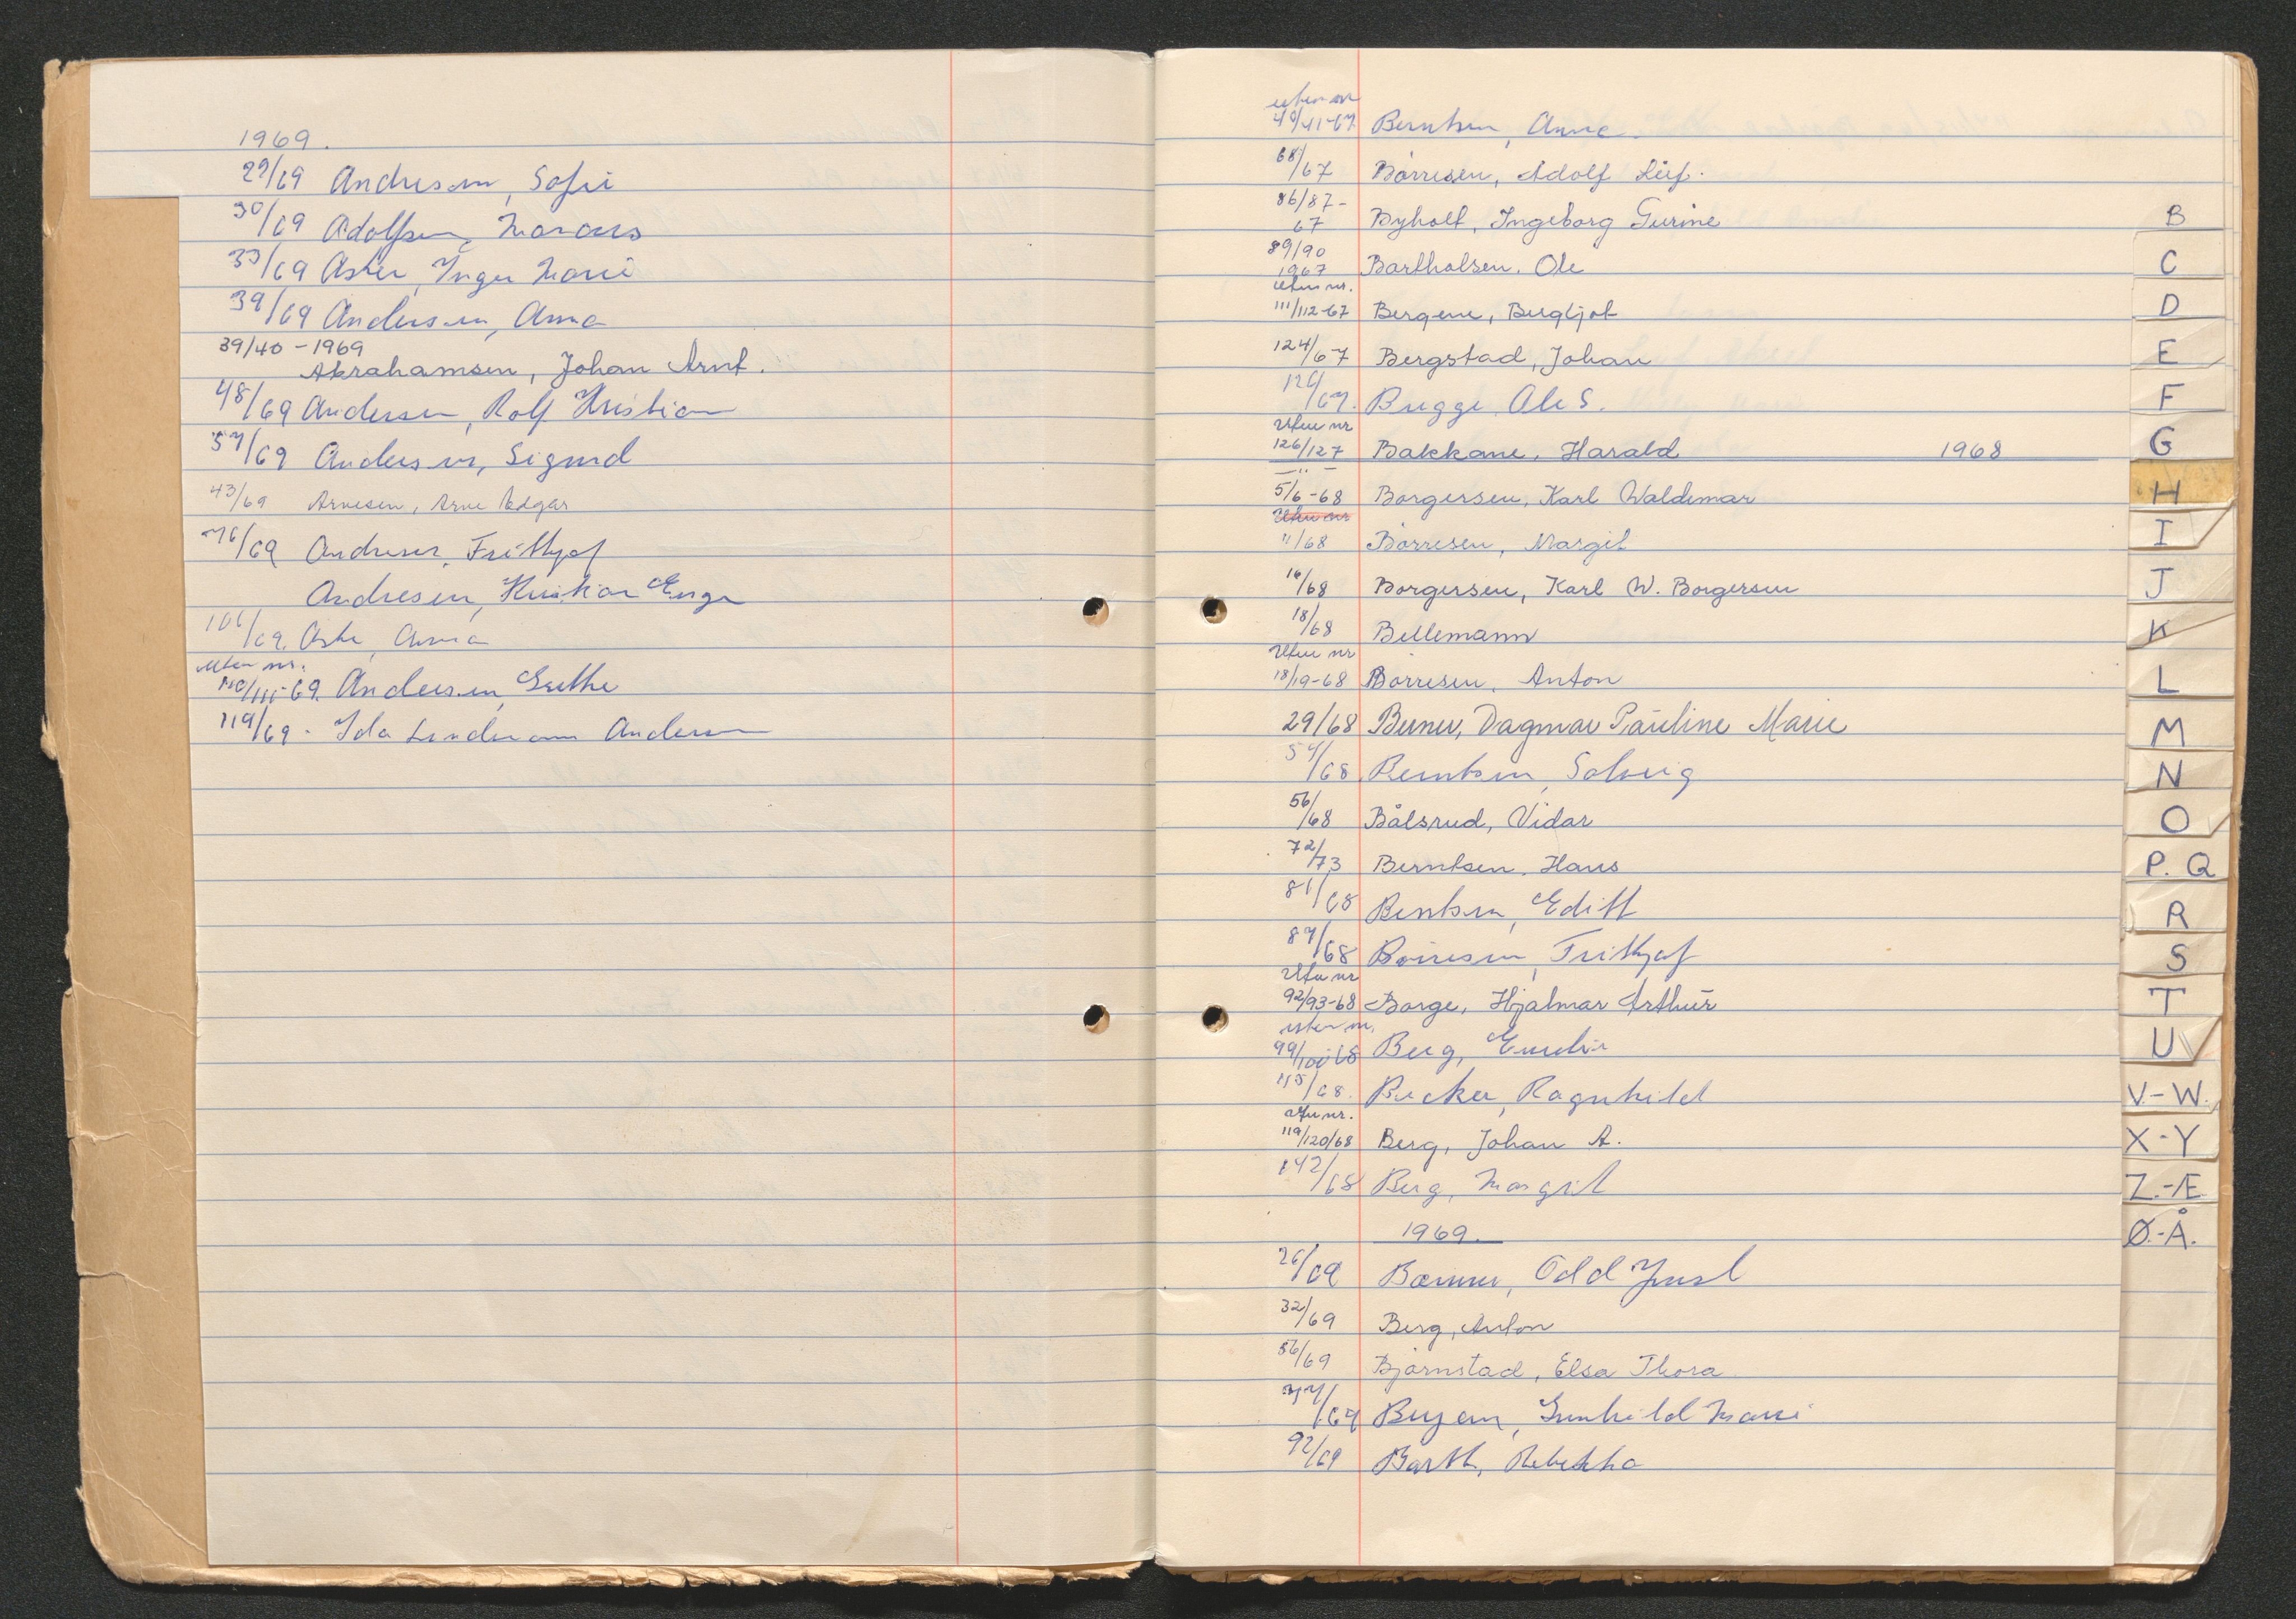 1969.
29/69 Andresen, Sofie
30/69 Adolfsen, Marcus
33/69 Asker, Inger Marie
39/69 Andersen, Anna
39/40 - 1969
Abrahamsen, Johan Arnt.
48/69 Andersen, Rolf Kristian
57/69 Andersen, Sigurd
43/69 Arnesen, Arne Edgar
76/69 Andresen, Frithjof
Andresen, Kristian
106/69. Aste, Anna
uten nr.
110/111-69. Andersen, Grethe
119/69. Ida Lindemann Andersen
uten nr
40/41-67 Berntsen, Anne.
68/67 Børresen, Adolf Leif.
86/87-
67 Byholt, Ingeborg Gurine
89/90
1967 Bartholsen. Ole
Uten nr.
111/112-67 Bergene, Bergljot
124/67 Bergstad, Johan
126/67. Bugge, Ole S.
Uten nr
126/127 Bakkane, Harald 1968
— " —
5/6-68 Borgersen, Karl Waldemar
Uten nr
11/68 Børresen, Margit
16/68 Borgersen, Karl W. Borgersen
18/68 Bellemann
Uten nr
18/19-68 Børresen, Anton
29/68 Berner, Dagmar Pauline Marie
54/68 Berntsen, Solveig
56/68 Bålsrud, Vidar
72/73 Berntsen, Hans
81/68 Bentsen, Edith
87/68 Børresen, Frithjof
Uten nr
92/93-68 Borge, Hjalmar Arthur
uten nr.
99/100-68 Berg,
115/68. Becker, Ragnhild
uten nr.
119/120/68 Berg, Johan A.
142/68 Berg, Margit
1969.
26/69 Odd
32/69 Berg, Anton
56/69 Bjørnstad, Elsa Thora
Gunhild Marie
92/69 Barth, Rebekka
B
C
D
E
F
G
H
I
J
K
L
M
N
O
P. Q
R
S
T
U
V.-W.
X-Y
Z.-Æ
Ø.-Å.